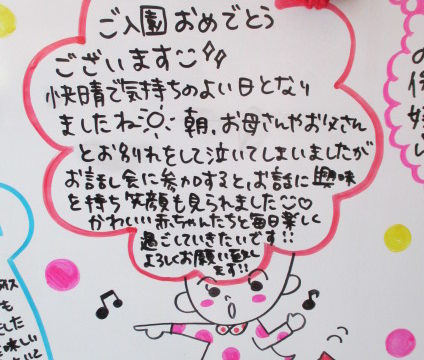 ご入園おめでとう
ございます
快晴で気持ちのよい日となり
ましたね 朝、お母さんやお父さん
とお別れをして泣いてしまいましたが
お話し会に参加すると、お話に興味
を持ち笑顔も見られました♡
かわいい赤ちゃんたちと毎日楽しく
過ごしていきたいです!!
よろしくお願い致し
ます!!